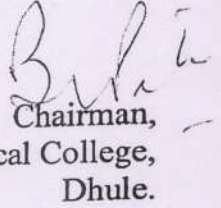 Chairman,
cal College,
Dhule.